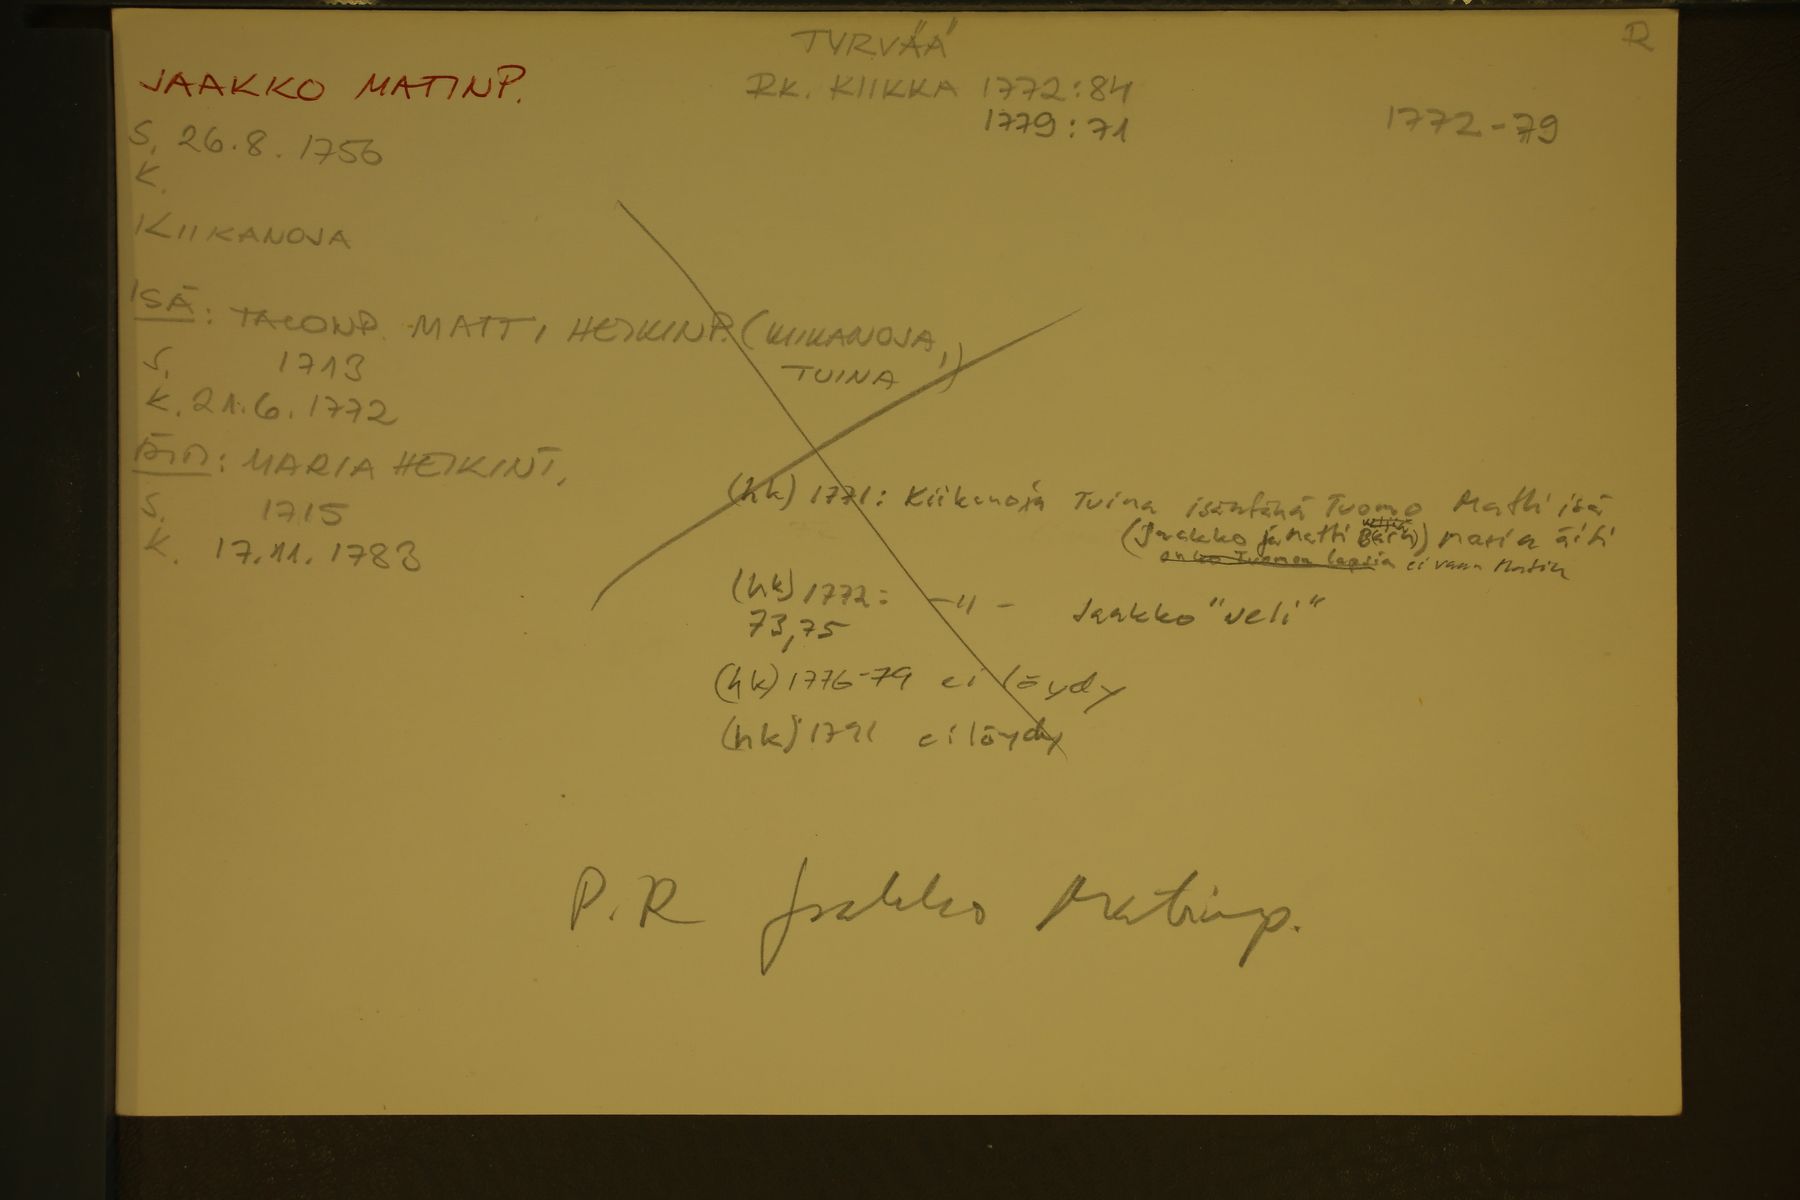 TYRVÄÄ
R
JAAKKO MATINP.
RK. KIIKKA 1772:84
1779:71
1772-79
S. 26.8.1756
K.
KIIKANOJA
ISÄ: TALONP. MATTI HEIKINP. (KIIKANOJA,
TUINA)
S. 1713
K. 21.6.1772
ÄITI: MARIA HEIKINT.
S. 1715
K. 17.11.1783
(hk) 1771: Kiikanoja Tuina isäntänä Tuomo Matti isä
(Jaakko ja Matti) Maria äiti
onko Tuomon lapsia ei vaan Matin
(hk) 1772: -"- Jaakko "veli"
73,75
(hk) 1776-79 ei löydy
(hk) 1791 ei löydy
P.R Jaakko Matinp.